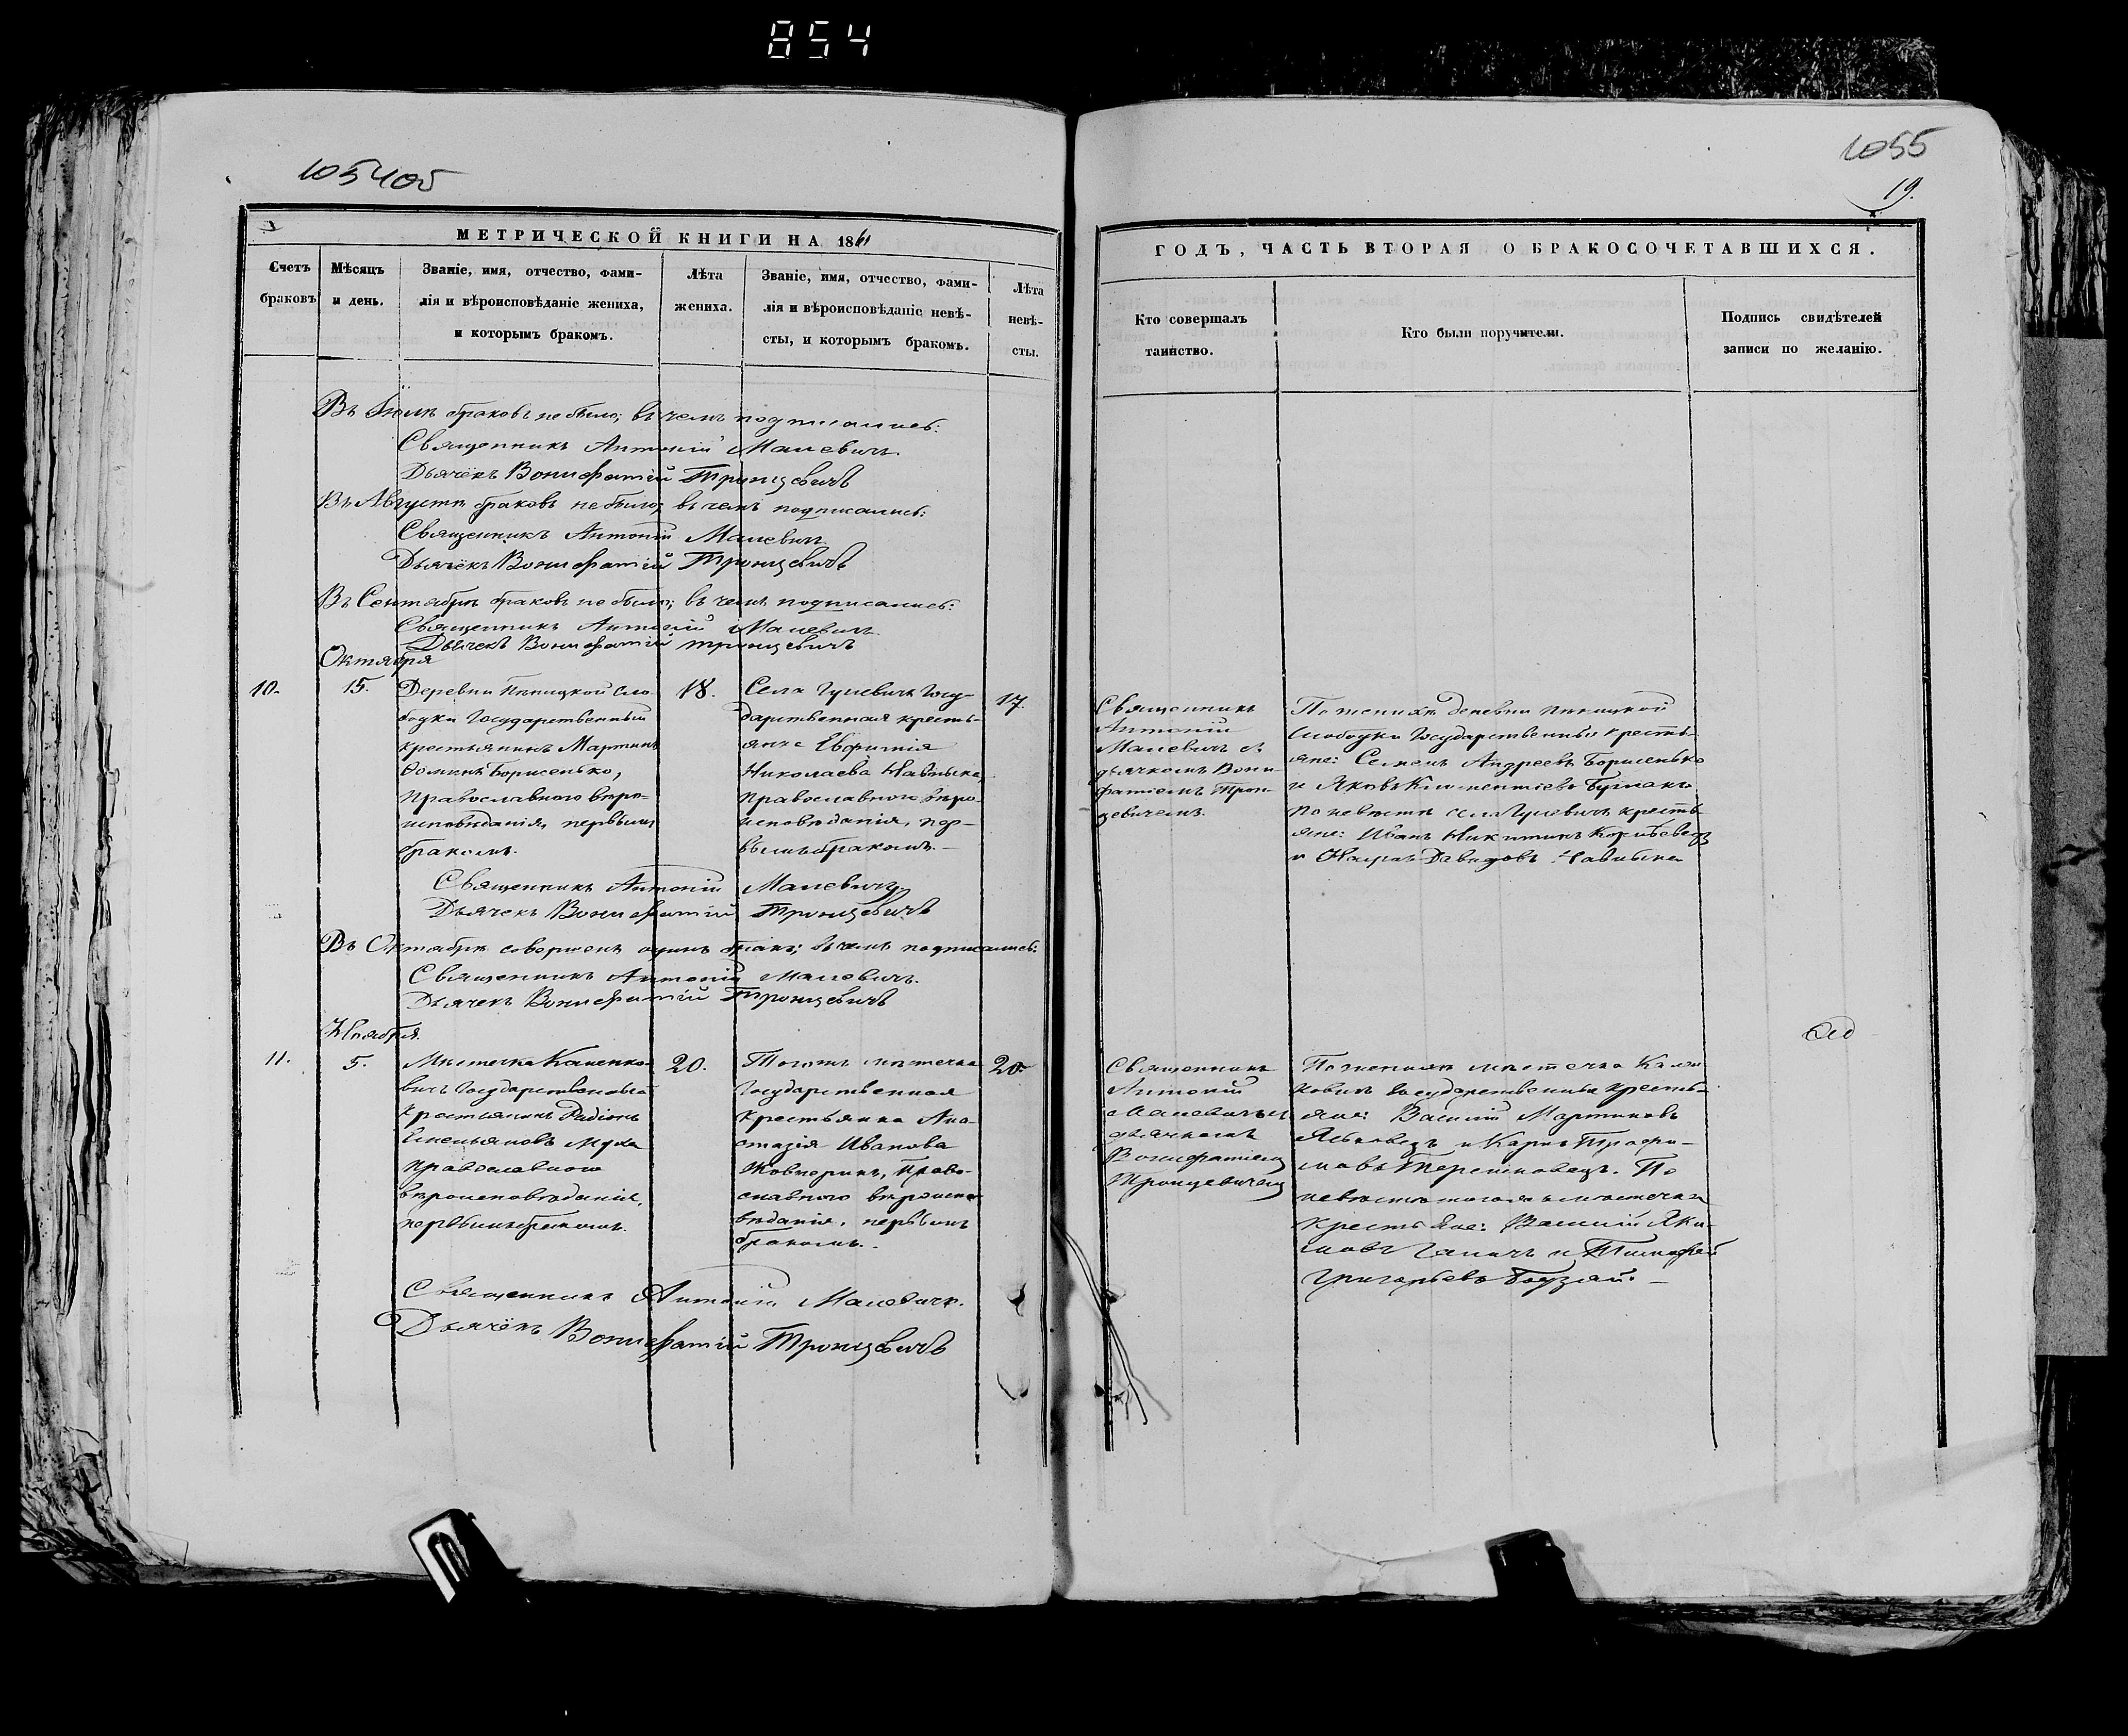 854
105405
1055
19.
МЕТРИЧЕСКОЙ КНИГИ НА 1861
ГОДЪ, ЧАСТЬ ВТОРАЯ О БРАКОСОЧЕТАВШИХСЯ.
Счетъ браковъ
Мѣсяцъ и день.
Званіе, имя, отчество, фами-
лія и вѣроисповѣданіе жениха,
и которымъ бракомъ.
Лѣта жениха.
Званіе, имя, отчество, фами-
лія и вѣроисповѣданіе невѣ-
сты, и которымъ бракомъ.
Лѣта невѣ-
сты.
Кто совершалъ
таинство.
Кто были поручители.
Подпись свидѣтелей
записи по желанію.
Въ Іюлѣ браковъ не было; въ чемъ подписались:
Священникъ Антоній Малевичъ
Дьячекъ Вонифатій Тронцевичъ
Въ Августѣ браковъ не было; въ чемъ подписались:
Священникъ Антоній Малевичъ
Дьячёкъ Вонифатій Тронцевичъ
Въ Сентябрѣ браковъ не было; въ чемъ подписались:
Священникъ Антоній Малевичъ
Дьячекъ Вонифатій Тронцевичъ
Октября
10.
15.
Деревни Сло-
бодки Государственный
крестьянинъ Мартинъ
Ѳоминъ Борисенько,
православнаго вѣро-
исповѣданія, первымъ
бракомъ.
18.
Села Гулевичъ Госу-
дарственная кресть-
янка Евфимія
Николаева
православнаго вѣро-
исповѣданія, пер-
вымъ бракомъ.
17.
Священникъ
Антоній
Малевичъ съ
дьячкомъ Вони-
фатіемъ Трон-
цевичемъ.
По женихѣ деревни
Слободки Государственные кресть-
яне: Семенъ Андреевъ Борисенько
и Яковъ
По невѣстѣ села Гулевичъ кресть-
яне: Иванъ Никитинъ
и Давидовъ
Священникъ Антоній Малевичъ
Дьячекъ Вонифатій Тронцевичъ
Въ Октябрѣ совершенъ одинъ бракъ; въ чемъ подписались:
Священникъ Антоній Малевичъ.
Дьячекъ Вонифатій Тронцевичъ
Ноября
11.
5.
Мѣстечка Каленко-
вичъ Государственный
крестьянинъ Радіонъ
Емельяновъ Муха
православнаго
вѣроисповѣданія,
первымъ бракомъ.
20.
Тогожъ мѣстечка
Государственная
крестьянка Ана-
стазія Иванова
Жовнерикъ, право-
славнаго вѣроиспо-
вѣданія, первымъ
бракомъ.
20.
Священникъ
Антоній
Малевичъ съ
дьячкомъ
Вонифатіемъ
Тронцевичемъ
По женихѣ мѣстечка Кален-
ковичъ Государственные кресть-
яне: Василій Мартиновъ
и Карпъ Трофи-
мовъ Терешковецъ. По
невѣстѣ тогожъ мѣстечка
крестьяне: Василій Яки-
мовъ и Тимофей
Григорьевъ
Священникъ Антоній Малевичъ.
Дьячёкъ Вонифатій Тронцевичъ